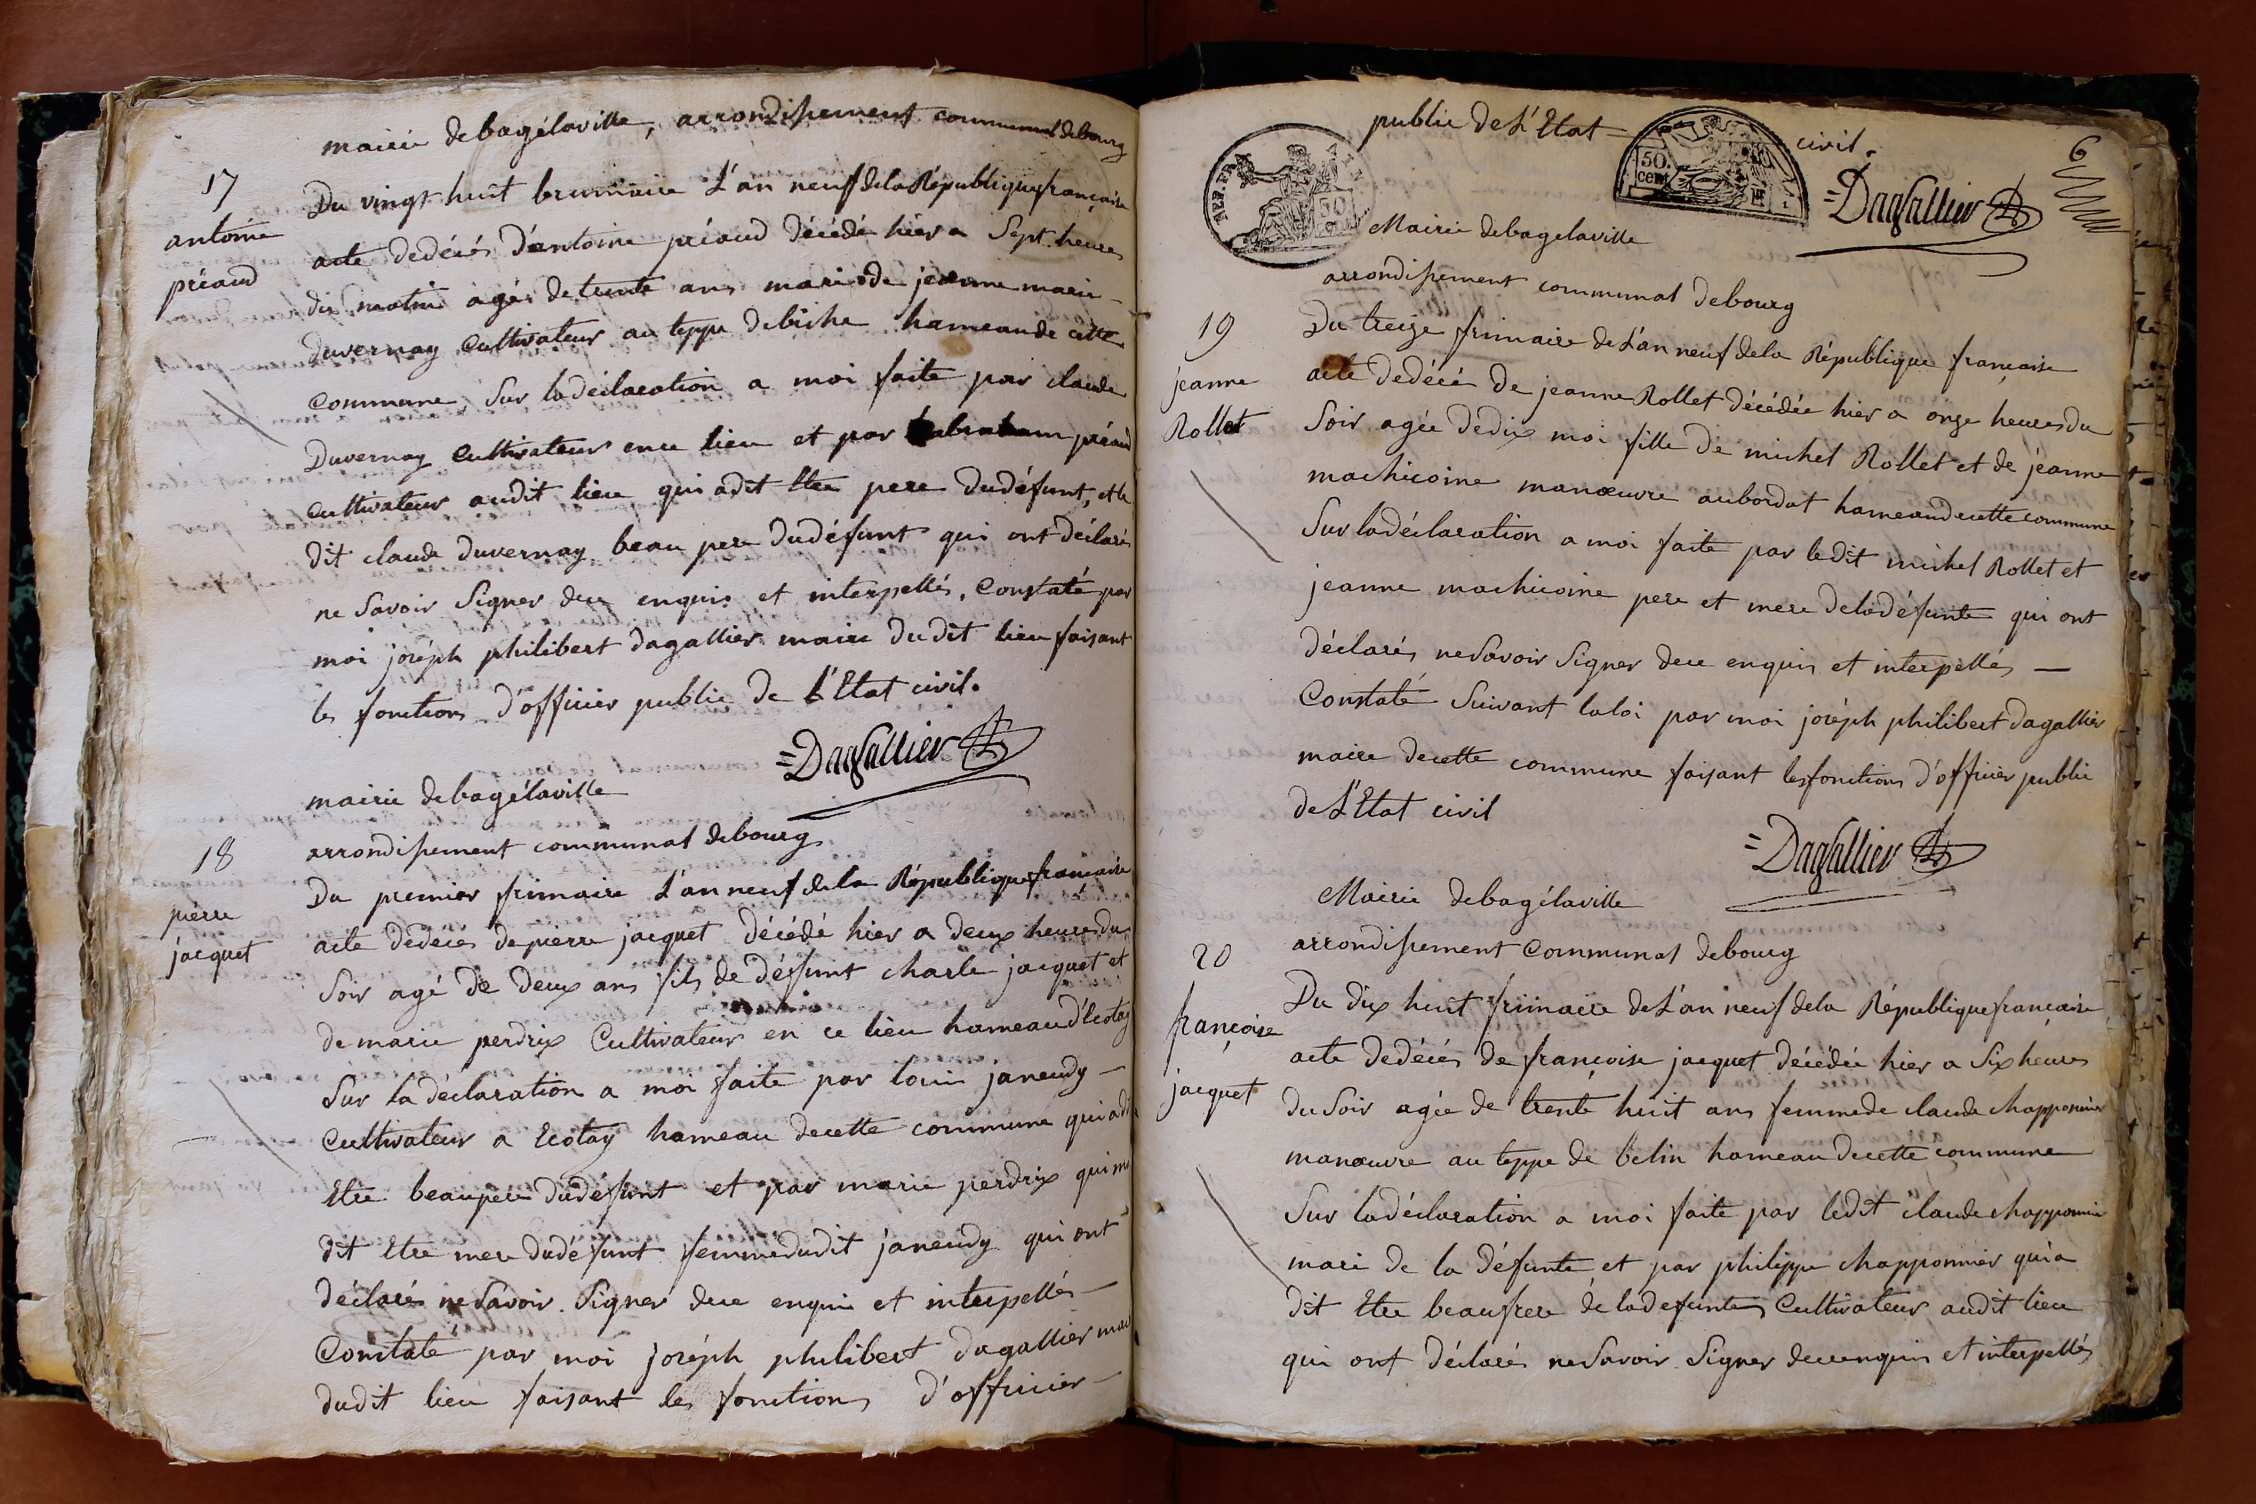 mairie debagélaville, arrondissement communal debourg
17
antoine
préaud
Du vingt huit brumaire L'an neuf dela République française
acte dedécès d'antoine préaud décédé hier a Sept heures
du matin agé de trente ans mari de jeanne marie
Duvernay Cultivateur au teppe debiche hameau de cette
Commune Sur la déclaration a moi faite par claude
Duvernay Cultivateur en ce lieu et par abraham préaud
Cultivateur audit lieu qui adit Etre pere Dudéfunt, et le
dit claude Duvernay beau pere Dudéfunt qui ont déclarés
ne Savoir Signer de ce enquis et interpellés, Constaté par
moi joséph philibert dagallier maire dudit lieu faisant
les fonctions d'officier public de L'Etat civil.
=Dagallier
mairie debagélaville
arrondissement communal debourg
18
pierre
jacquet
Du premier frimaire L'an neuf de la République française
acte dedécès depierre jacquet décédé hier a deux heures du
Soir agé de deux ans fils de défunt charle jacquet et
de marie perdrix Cultivateur en ce lieu hameau d'Ecotay
Sur la déclaration a moi faite par louis janeudy
Cultivateur a Ecotay hameau decette commune qui a dit
Etre beaupere dudéfunt et par marie perdrix qui m'a
dit Etre mere dudéfunt femmedudit janeudy qui ont
déclarés ne Savoir Signer de ce enquis et interpellés
Constaté par moi joséph philibert dagallier maire
dudit lieu faisant les fonctions d'officier
public de L'Etat civil.
6
REP. FRA
50
c
50
cent
=Dagallier
Mairie debagelaville
arrondissement communal debourg
19
jeanne
Rollet
Du treize frimaire de L'an neuf dela République française
acte dedécès de jeanne Rollet décédée hier a onze heures du
Soir agée dedix moi fille de michel Rollet et de jeanne
machicoine manœuvre aubordat hameau decette commune
Sur ladéclaration a moi faite par ledit michel Rollet et
jeanne machicoine pere et mere deladéfunte qui ont
déclarés nesavoir Signer de ce enquis et interpellés
Constaté Suivant laloi par moi joséph philibert dagallier
maire decette commune faisant lesfonctions d'officier public
de L'Etat civil
=Dagallier
Mairie debagélaville
arrondissement Communal debourg
20
françoise
jacquet
Du dix huit frimaire de L'an neuf dela République française
acte dedécès de françoise jacquet décédée hier a Six heures
du Soir agée de trente huit ans femmede claude chapponnier
manœuvre au teppe de belin hameau decette commune
Sur ladéclaration a moi faite par ledit claude chapponnier
mari de la défunte et par philippe chapponnier qui a
dit Etre beaufrere de ladefunte Cultivateur audit lieu
qui ont déclarés nesavoir Signer de ce enquis et interpellés